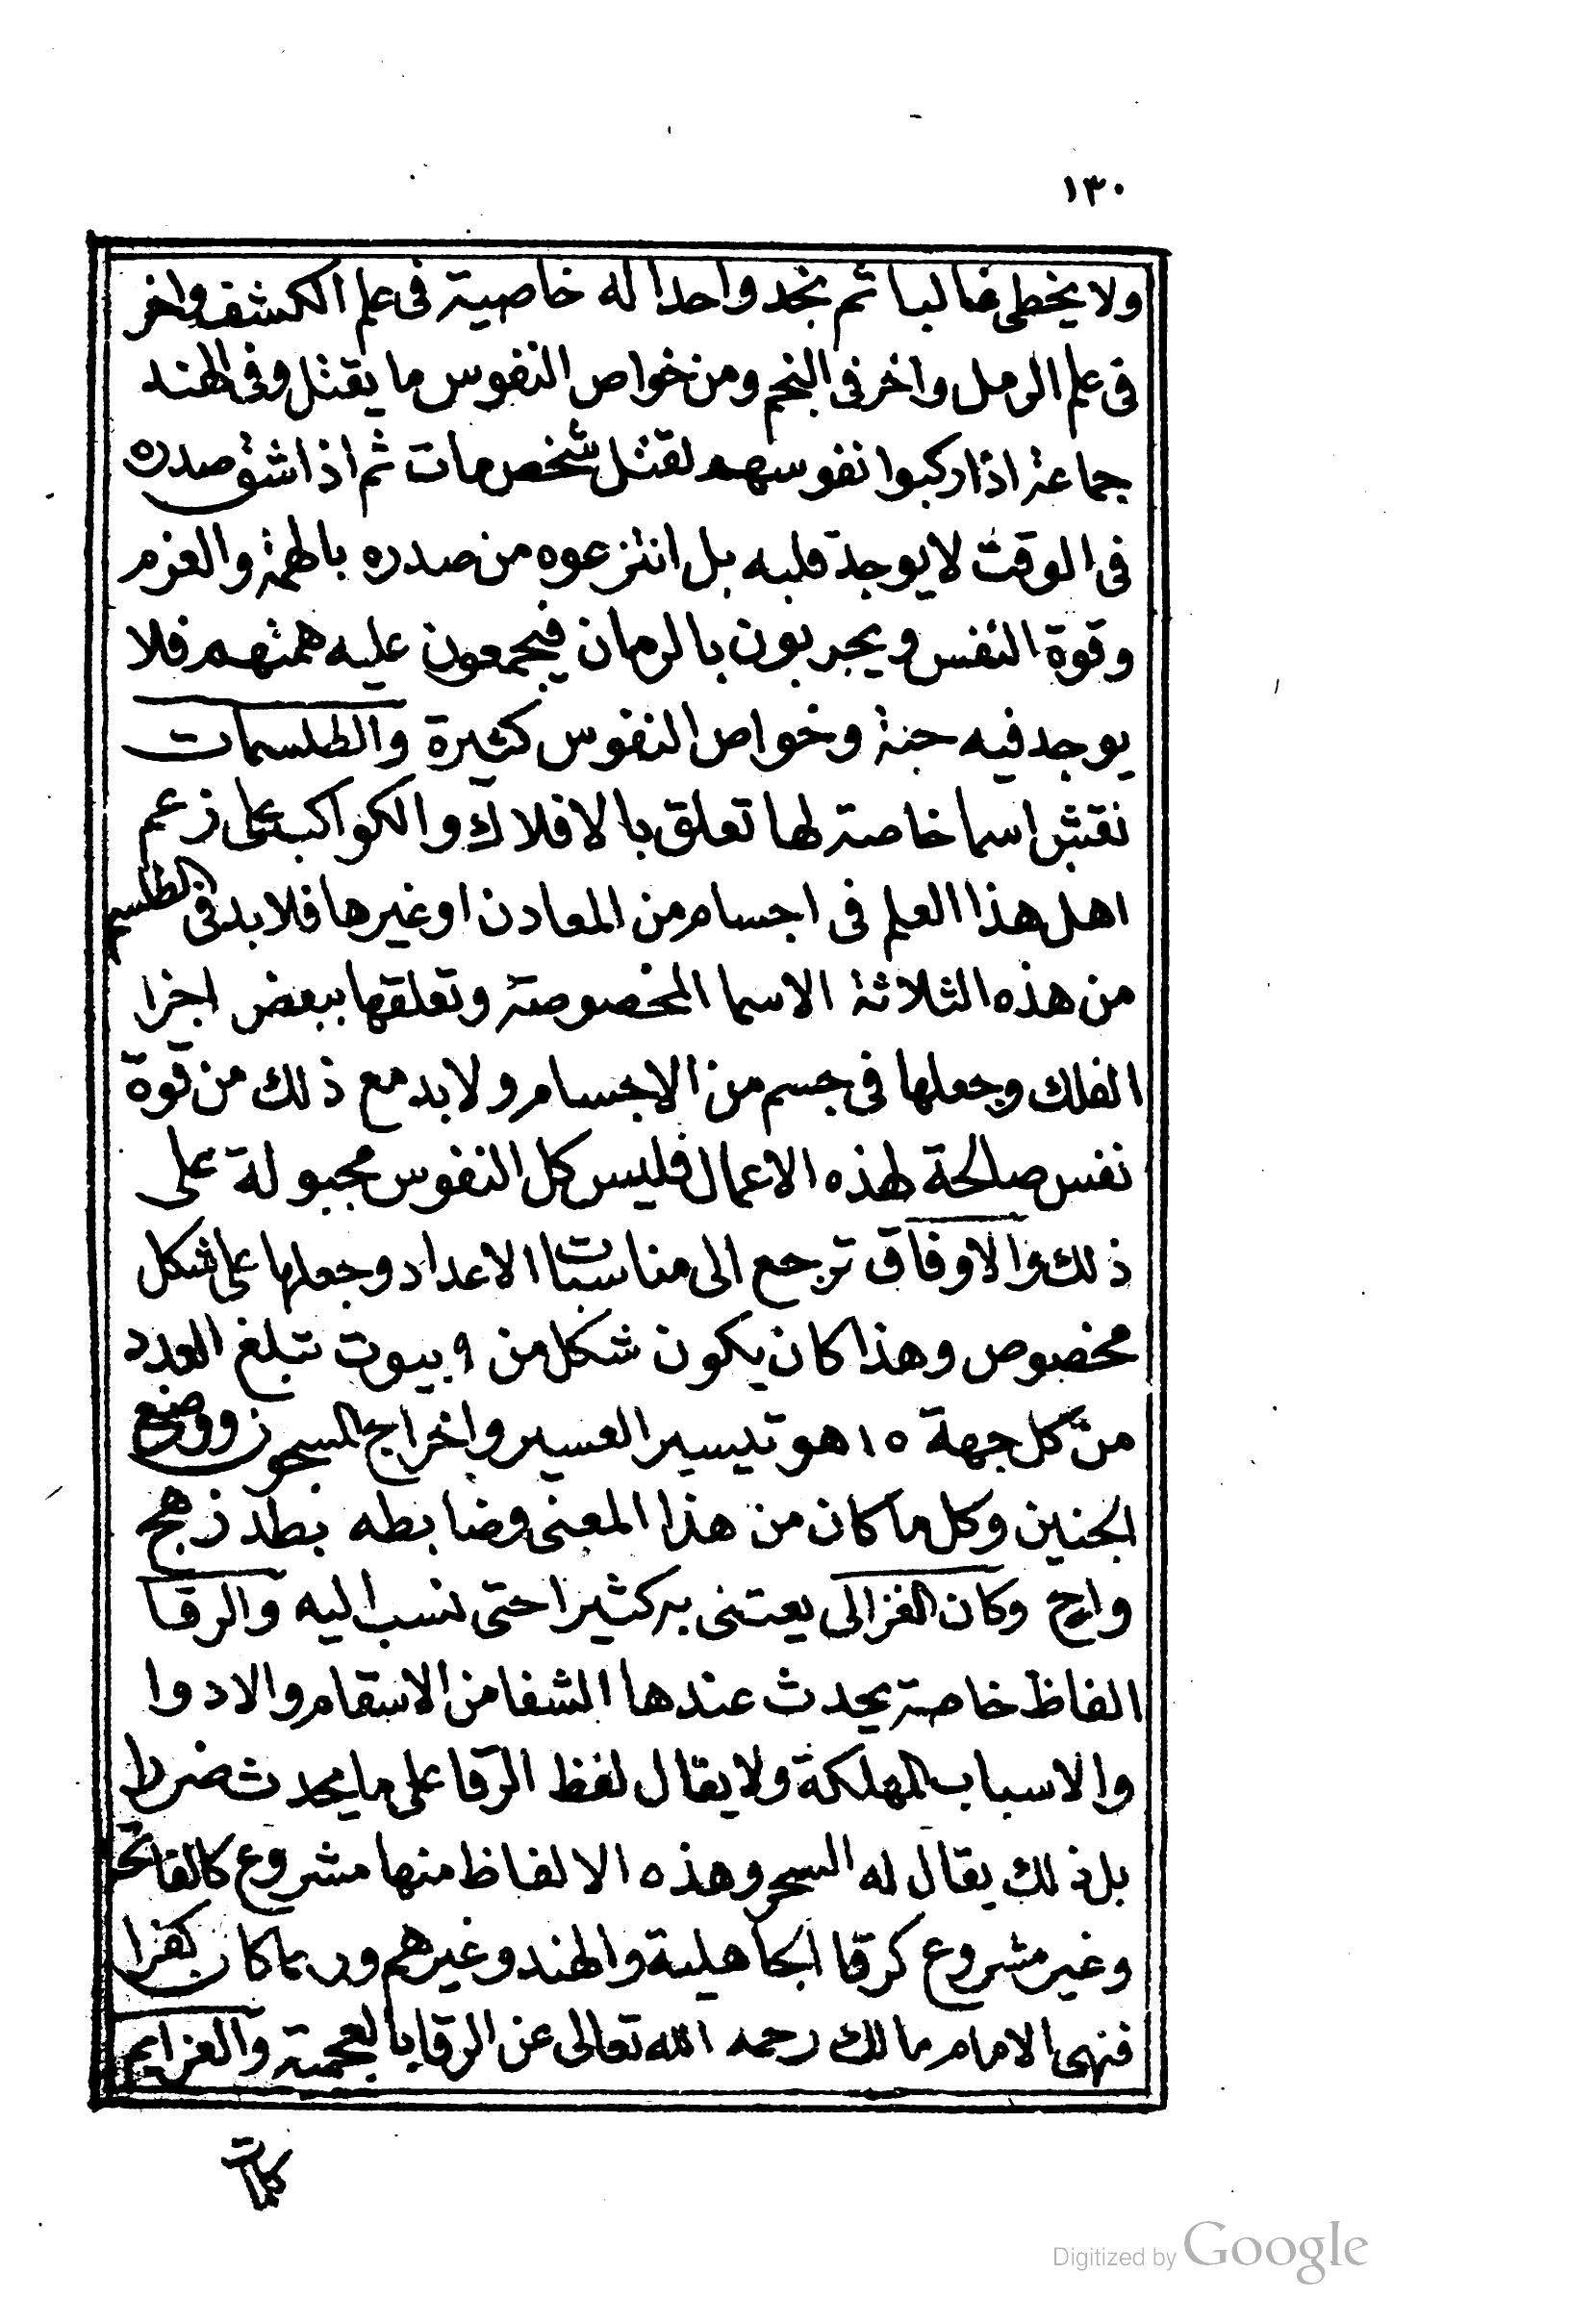 ١٣٠
ولا يخطى غالبا ثم نجد واحدا له خاصية فى علم الكشف واخر
فى علم الرمل واخر فى النجم ومن خواص النفوس ما يقتل وفى الهند
جماعة اذا ركبوا نفوسهم لقتل شخص مات ثم اذا شق صدره
فى الوقت لا يوجد قلبه بل انتزعوه من صدره بالهمة والعزم
وقوة النفس ويجربون بالرمان فيجمعون عليه همتهم فلا
يوجد فيه حبة وخواص النفوس كثيرة والطلسمات
نقش اسما خاصة لها تعلق بالافلاك والكواكب على زعم
اهل هذا العلم فى اجسام من المعادن او غيرها فلابد فى الطلسم
من هذه الثلاثة الاسما المخصوصة وتعلقها ببعض اجزا
الفلك وجعلها فى جسم من الاجسام ولابد مع ذلك من قوة
نفس صالحة لهذه الاعمال فليس كل النفوس مجبولة على
ذلك والاوفاق ترجع الى مناسبات الاعداد وجعلها على شكل
مخصوص وهذا كان يكون شكل من ٩ بيوت تبلغ العدد
من كل جهة ١٥ هو تيسير العسير واخراج المسجون ووضع
الجنين وكل ما كان من هذا المعنى وضابطه بطد زهج
واح وكان الغزالى يعتنى به كثيرا حتى نسب اليه والرقا
الفاظ خاصة يحدث عندها الشفا من الاسقام والادوا
والاسباب المهلكة ولا يقال لفظ الرقا على ما يحدث ضررا
بل ذلك يقال له السحر وهذه الالفاظ منها مشروع كالفاتحة
وغير مشروع كرقا الجاهلية والهند وغيرهم وربما كان كفرا
فنهى الامام مالك رحمه الله تعالى عن الرقا بالعجمية والعزايم
كلمات
Digitized by Google